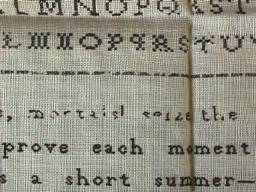 L M N O P Q R S T
L M N O P Q R S T U V
mortals! seize the
prove each moment
s a short summer—